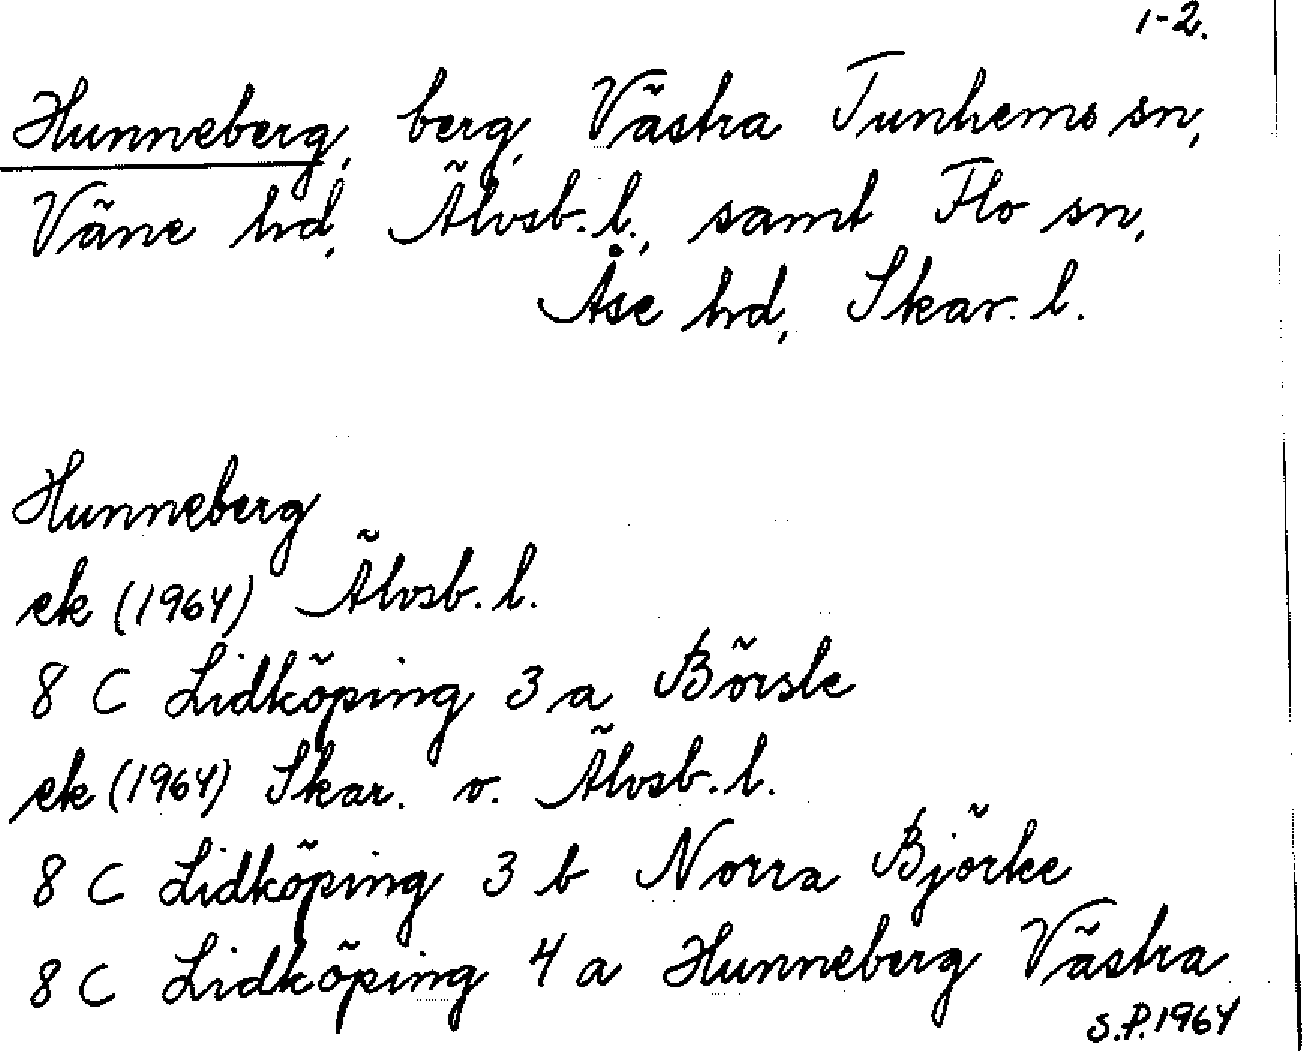 1-2.
Hunneberg, berg, Västra Tunhems sn,
Väne hd, Älvsb. l., samt Flo sn,
Åse hd, Skar. l.
Hunneberg
ek (1964) Älvsb. l.
8 C Lidköping 3 a Börsle
ek (1964) Skar. o. Älvsb. l.
8 C Lidköping 3 b Norra Björke
8 C Lidköping 4 a Hunneberg Västra
S.P. 1964